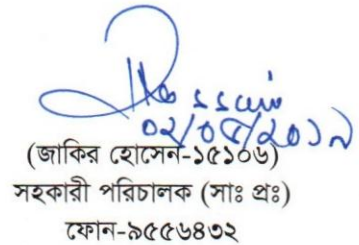 ০২/০৫/২০১৯
(জাকির হোসেন-১৫১০৬)
সহকারী পরিচালক (সাঃ প্রঃ)
ফোন-৯৫৫৬৪৩২